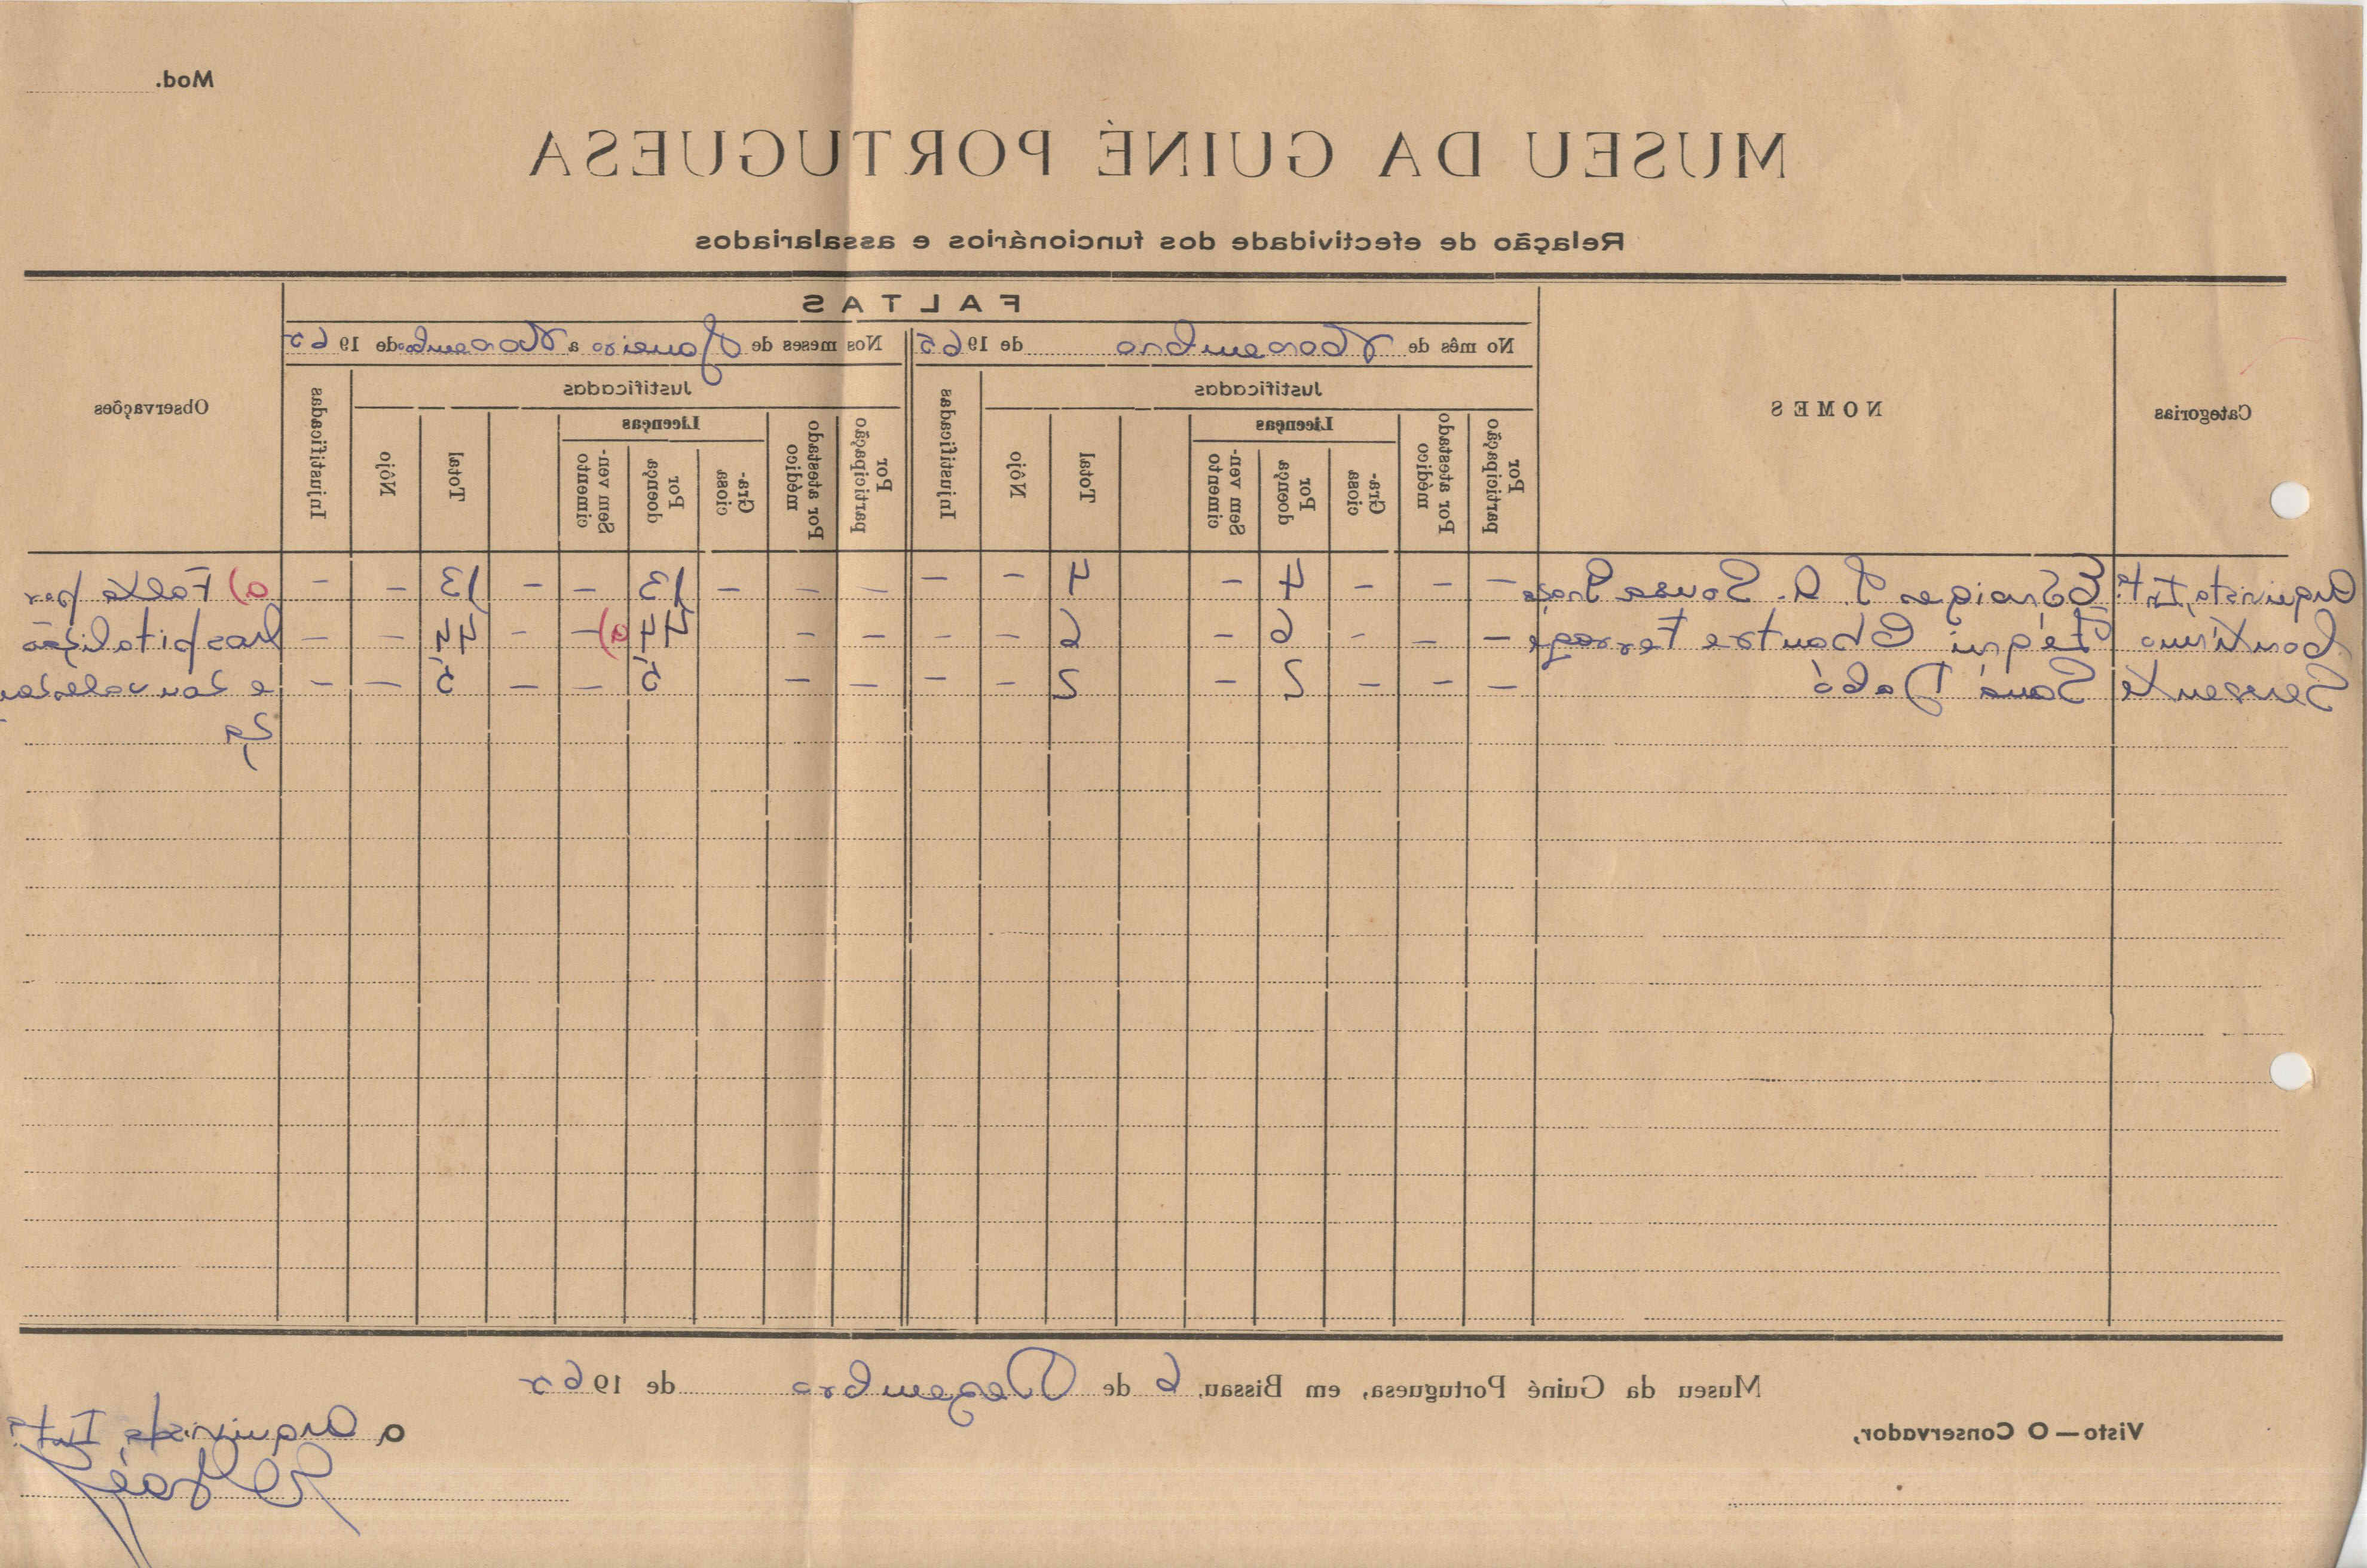 Mod.
MUSEU DA GUINÉ PORTUGUESA
Relação de efectividade dos funcionários e assalariados
Categorias NOMES FALTAS Observações
No mês de Novembro de 1965 Nos meses de Janeiro a Novembro de 1965
Justificadas Injustificadas Justificadas Injustificadas
Por participação Por atestado médico Licenças Total Nôjo Por participação Por atestado médico Licenças Total Nôjo
Gra-ciosa Por doença Sem ven-cimento Gra-ciosa Por doença Sem ven-cimento
Arquivista, Int.º A. Sousa - - - 4 - 4 - - - - - 13 - - 13 - - a) Falta por
Contínuo - - - 6 - 6 - - - - 44 a) - - 44 - - hospitalização
Servente Saná Dabó - - - 2 - 2 - - - - 5 - - 5 - - e convalescen
ça
Museu da Guiné Portuguesa, em Bissau, 6 de Dezembro de 1965
Visto—O Conservador,
O Arquivista, Int.º